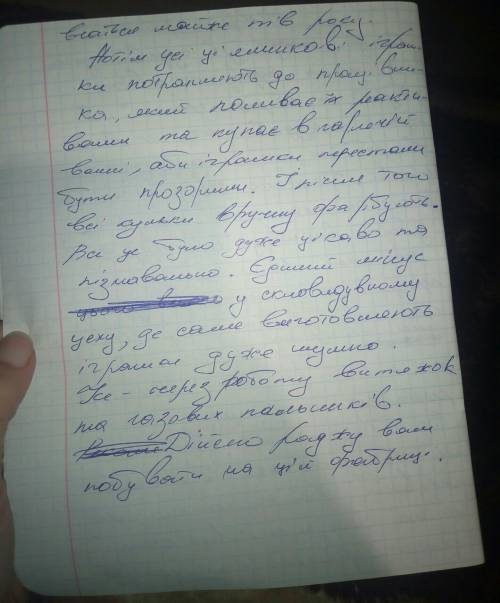 ваться майже пів року.
Потім усі ці ялинкові іграш-
ки потрапляють до працівни-
ка, який поливає їх реакти-
вами та купає в гарячій
ванні, аби іграшки перестали
бути прозорими. І після того
всі кульки вручну фарбують.
Все це було дуже цікаво та
пізнавально. Єдиний мінус
у склодувному
цеху, де саме виготовляють
іграшки дуже шумно.
Це - через роботу витяжок
та газових пальників.
Дійсно раджу вам
побувати на цій фабриці.